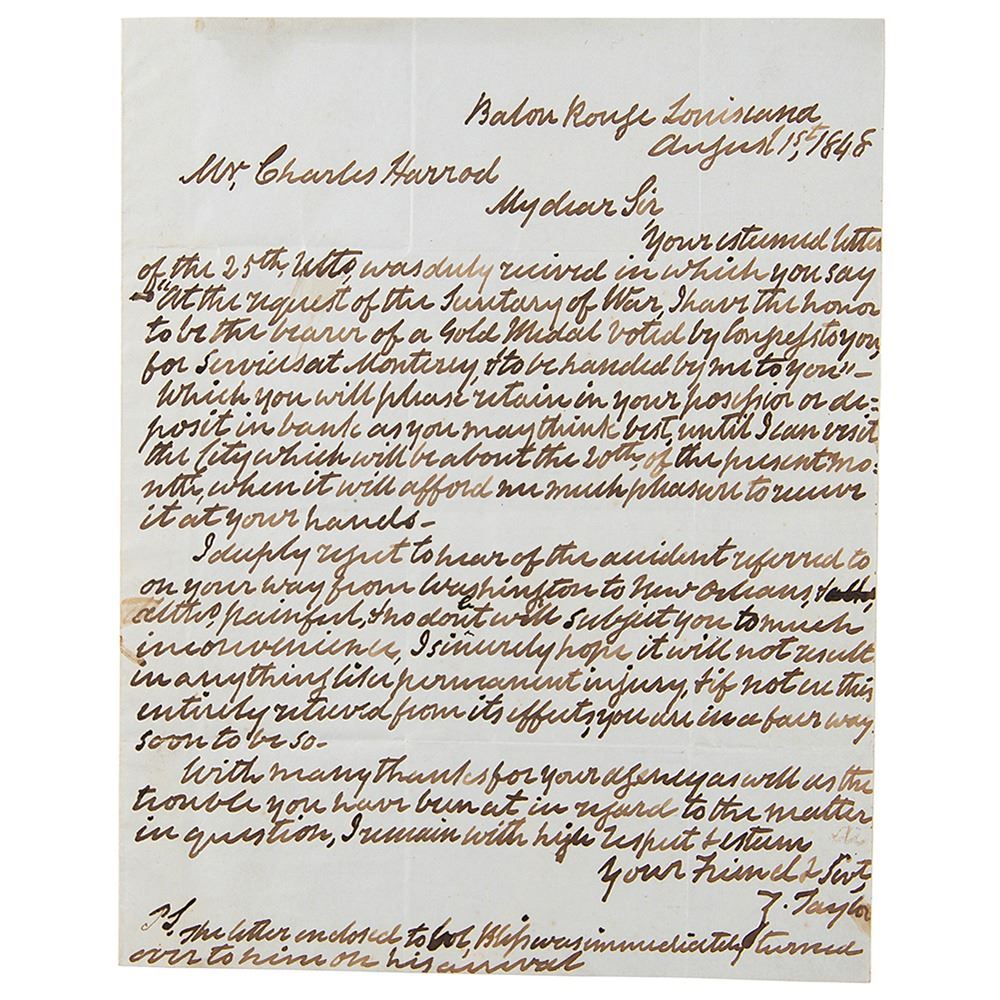 Baton Rouge Louisiana
August 1st, 1848
Mr, Charles Harrod
My dear Sir
Your esteemed letter
of the 25th, Ulto, was duly recived in which you say
"At the request of the Secretary of War, I have the honor
to be the bearer of a Gold Medal voted by Congress to you,
for Services at Monterey, & to be handed by me to you" -
Which you will please retain in your posession or de=
posit in bank as you may think best, until I can visit
the City which will be about the 20th, of the present mo=
nth, when it will afford me much pleasure to receive
it at your hands -
I deeply regret to hear of the accident referred to
on your way from Washington to New Orleans, &
altho, painful, & no dout will subject you to much
inconvenience, I sincerely hope it will not result
in anything like permanent injury, & if not on this
entirely relieved from its effects, you are in a fair way
soon to be so -
With many thanks for your agency as well as the
trouble you have been at in regard to the matter
in question, I remain with high respect & esteem
Your Friend & Servt,
Z. Taylor
P.S. The letter enclosed to Col, Bliss was immediately turned
over to him on his arrival